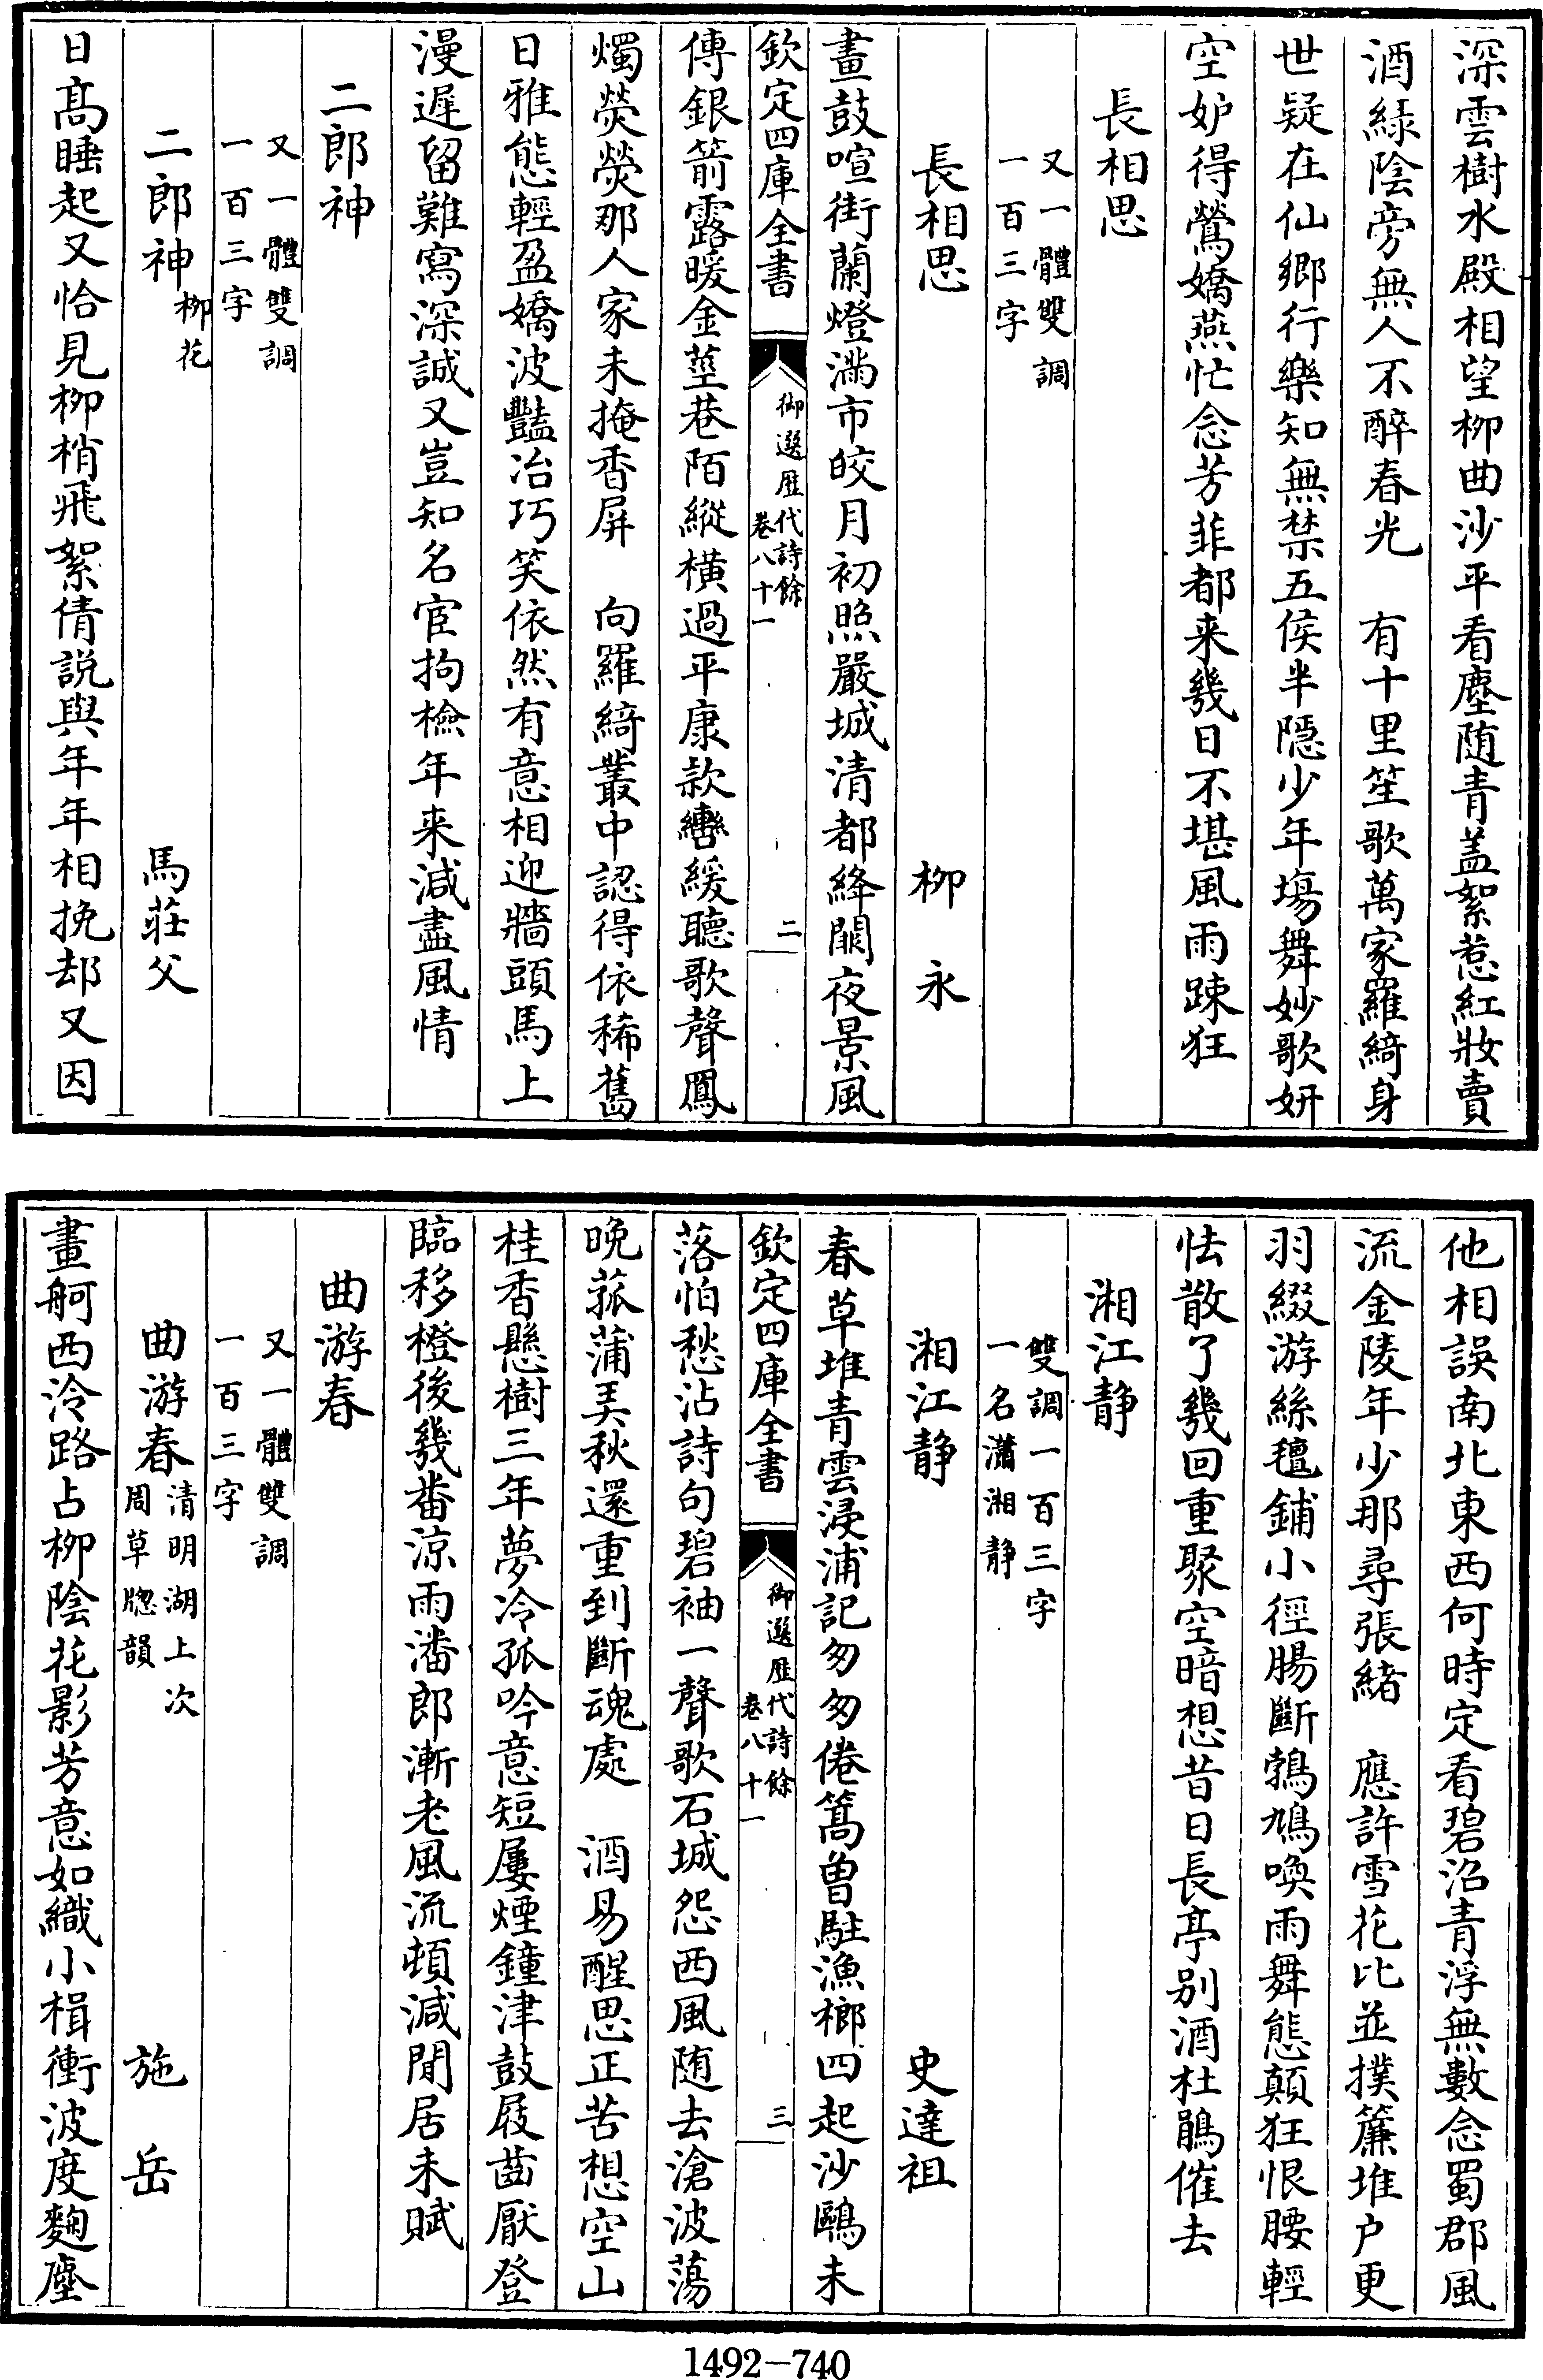 深雲樹水殿相望柳曲沙平看塵随青盖絮惹紅妝賣
酒緑陰旁無人不醉春光　有十里笙歌萬家羅綺身
世疑在仙鄉行樂知無禁五侯半隠少年場舞妙歌妍
空妒得鶯嬌燕忙念芳菲都来幾日不堪風雨踈狂
長相思
又一體雙調
一百三字
長相思　柳永
畫鼓喧街蘭燈滿市皎月初照嚴城清都絳闕夜景風
欽定四庫全書
御選歷代詩餘
卷八十一
二
傳銀箭露暖金莖巷陌縱横過平康款轡緩聽歌聲鳳
燭熒熒那人家未掩香屏　向羅綺叢中認得依稀舊
日雅態輕盈嬌波豔冶巧笑依然有意相迎牆頭馬上
漫遲留難寫深誠又豈知名宦拘檢年来減盡風情
二郎神
又一體雙調
一百三字
二郎神柳花　馬莊父
日髙睡起又恰見柳梢飛絮倩説與年年相挽却又因
他相誤南北東西何時定看碧沼青浮無數念蜀郡風
流金陵年少那尋張緒　應許雪花比並撲簾堆户更
羽綴游絲氊鋪小徑腸斷鵓鳩喚雨舞態顛狂恨腰輕
怯散了幾回重聚空暗想昔日長亭别酒杜鵑催去
湘江静
雙調一百三字
一名瀟湘静
湘江静　史達祖
春草堆青雲浸浦記匆匆倦篙曾駐漁榔四起沙鷗未
欽定四庫全書
御選歷代詩餘
卷八十一
三
落怕愁沾詩句碧袖一聲歌石城怨西風随去滄波蕩
晚菰蒲美秋還重到斷魂處　酒易醒思正苦想空山
桂香懸樹三年夢冷孤吟意短屢煙鐘津鼓屐齒厭登
臨移橙後幾畨涼雨潘郎漸老風流頓減閒居未賦
曲游春
又一體雙調
一百三字
曲游春清明湖上次
周草牕韻　施岳
畫舸西泠路占柳陰花影芳意如織小楫衝波度麴塵
1492-740